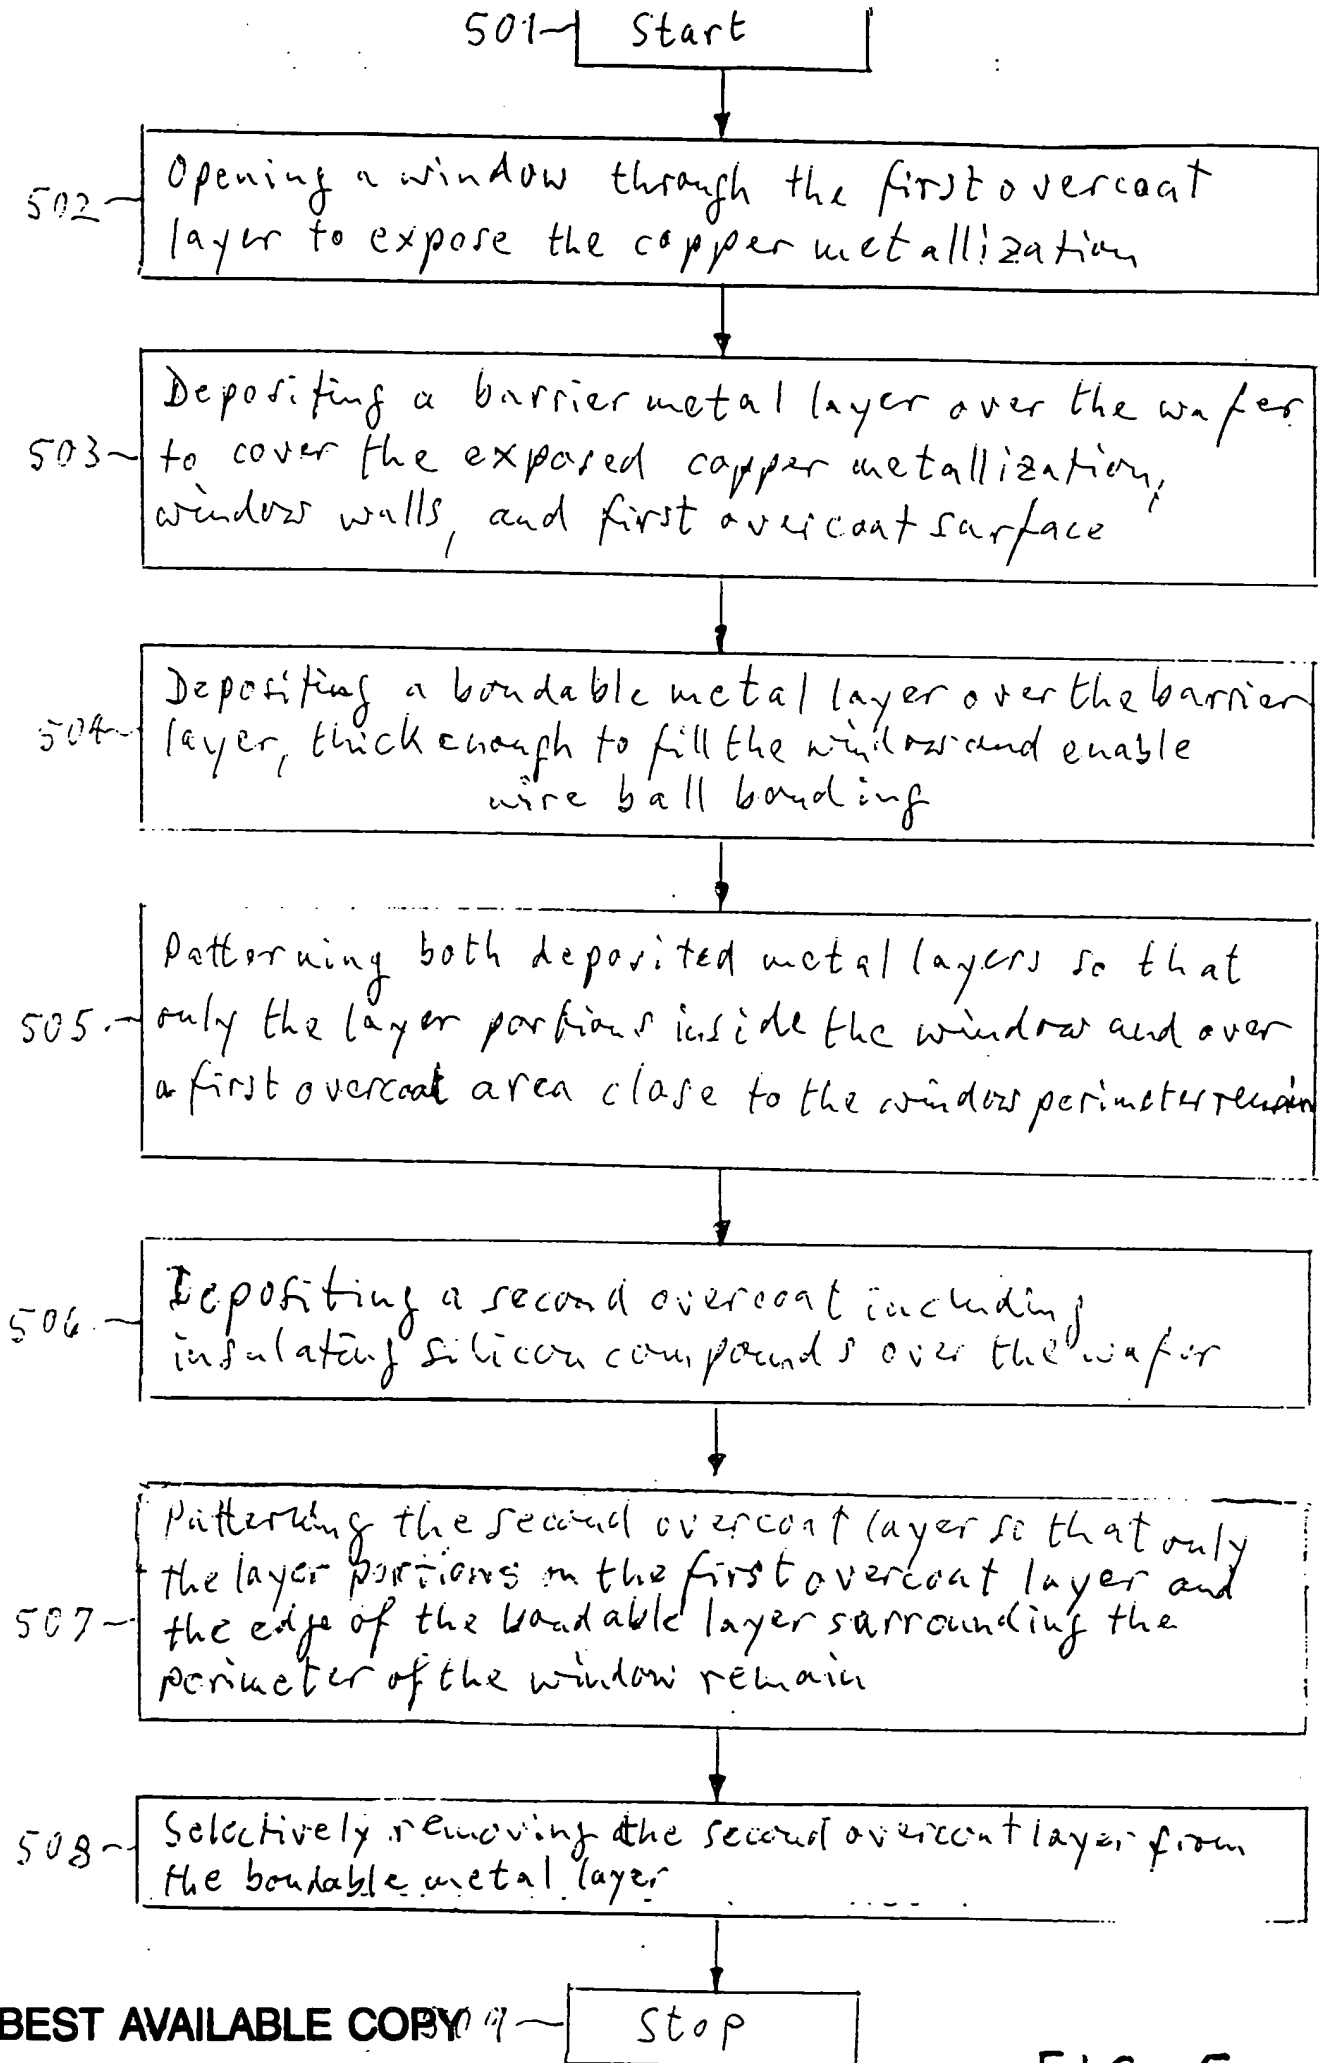 501 Start
502 Opening a window through the first overcoat
layer to expose the copper metallization
Depositing a barrier metal layer over the wafer
503 to cover the exposed copper metallization,
window walls, and first overcoat surface
Depositing a bondable metal layer over the barrier
504 layer, thick enough to fill the window and enable
wire ball bonding
Patterning both deposited metal layers so that
505 only the layer portions inside the window and over
a first overcoat area close to the window perimeter remain
506 Depositing a second overcoat including
insulating silicon compounds over the wafer
Patterning the second overcoat layer so that only
the layer portions on the first overcoat layer and
507 the edge of the bondable layer surrounding the
perimeter of the window remain
508 Selectively removing the second overcoat layer from
the bondable metal layer
BEST AVAILABLE COPY 509 Stop